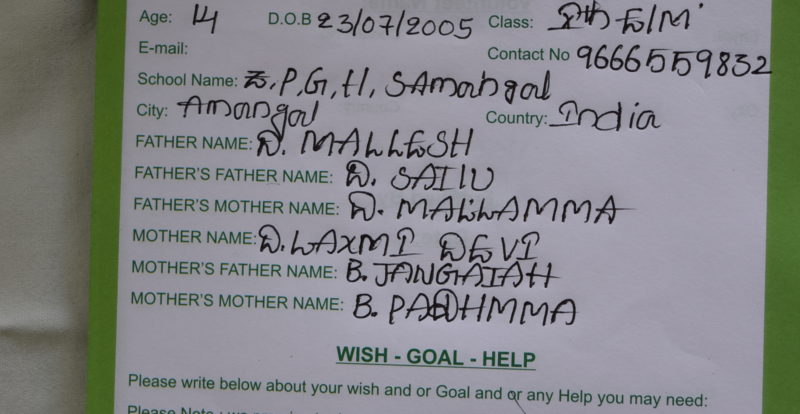 Age: 14 D.O.B 23/07/2005 Class: E/M
E-mail: Contact No 9666559832
School Name: Z.P.G.H.S Amangal
City: Amangal Country: India
FATHER NAME: D. MALLESH
FATHER'S FATHER NAME: D. SAILU
FATHER'S MOTHER NAME: D. MALLAMMA
MOTHER NAME: D. LAXMI DEVI
MOTHER'S FATHER NAME: B. JANGAIAH
MOTHER'S MOTHER NAME: B.
WISH - GOAL - HELP
Please write below about your wish and or Goal and or any Help you may need:
Please Note